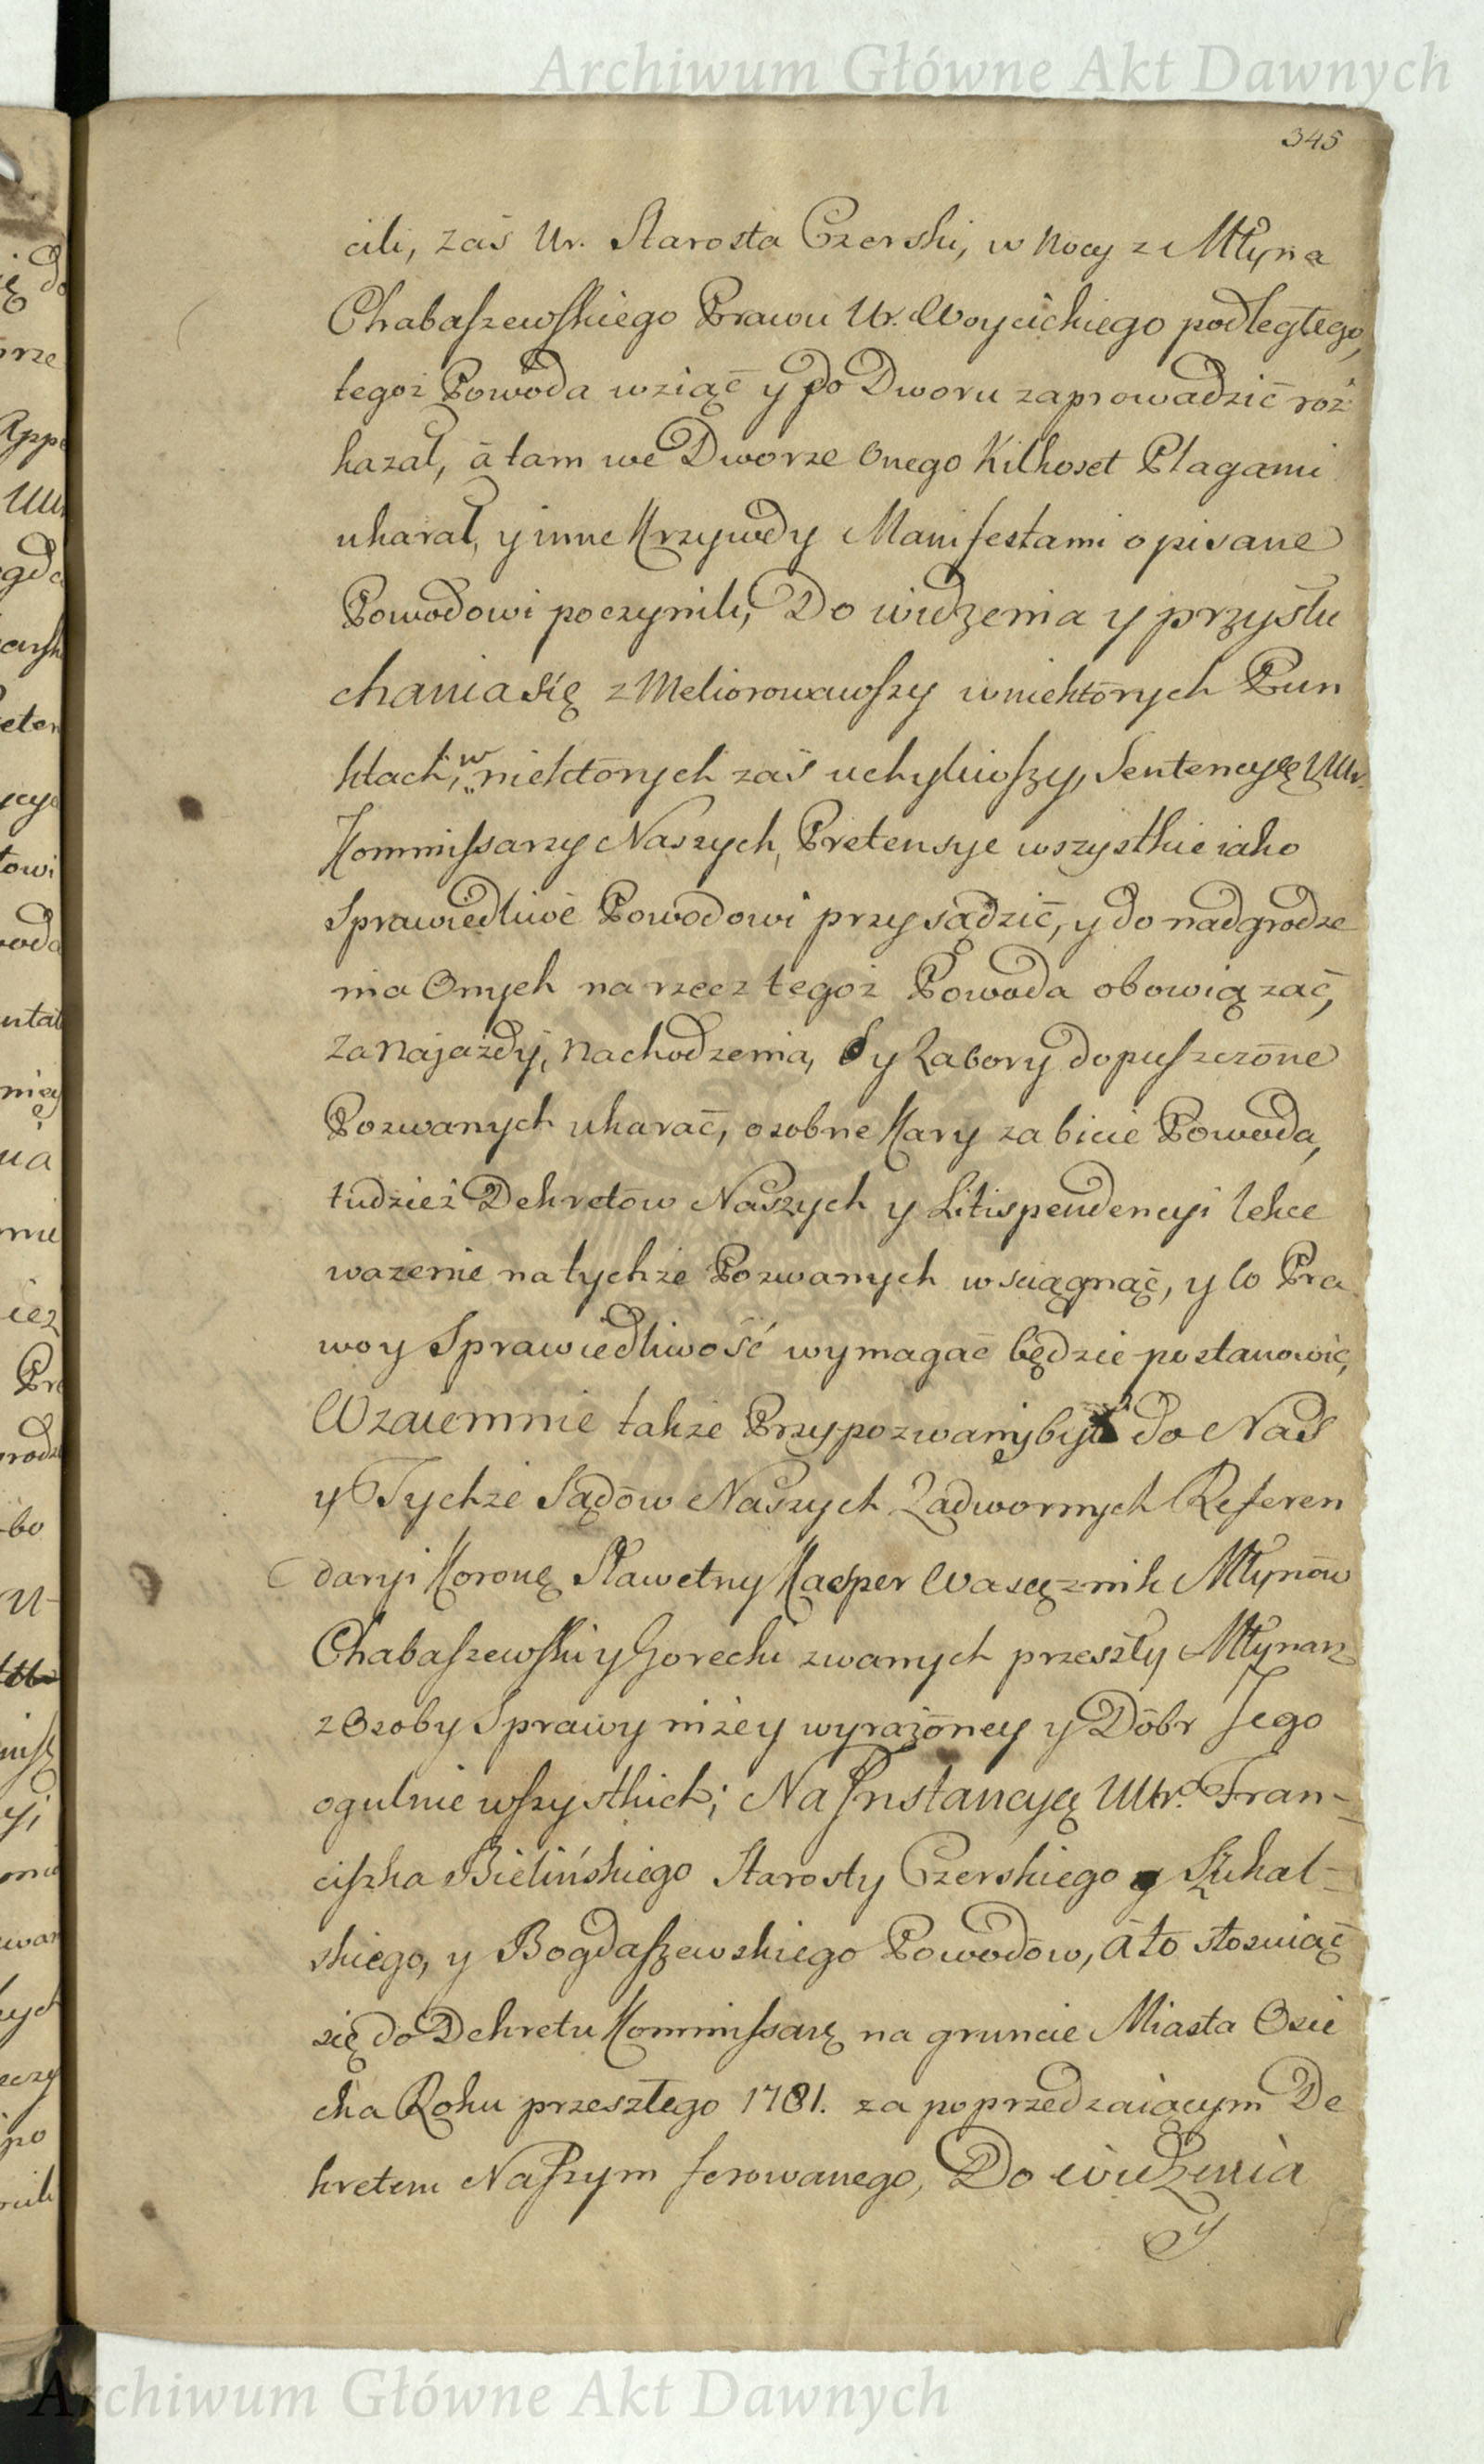 Archiwum Główne Akt Dawnych
345
cili, zaś Ur. Starosta Czerski, w Nocy z Młyna
Chabaszewskiego Prawu Ur. Woycickiego podległego,
tegoż Powoda wziąć y do Dworu zaprowadzić roz
kazał, á tam we Dworze Onego Kilkoset Plagami
ukarał, y inne Krzywdy Manifestami opisane
Powodowi poczynili, Do widzenia y przysłu
chania się zmeliorowawszy w niektórych Pun
ktach, w niektórych zaś uchyliwszy, Sentencyę UUr.
Kommissarzy Naszych, Pretensye wszystkie iako
Sprawiedliwe Powodowi przysądzić, y do nadgrodze
nia Onych na rzecz tegoż Powoda obowiązać,
za Najazdy, Nachodzenia, y Zabory dopuszczone
Pozwanych ukarać, osobne Kary za bicie Powoda,
tudzież Dekretow Naszych y Litispendencyi lekce
ważenie na tychże Pozwanych wsciągnąć, y co Pra
wo y Sprawiedliwość wymagać będzie postanowić,
Wzaiemnie także Przypozwany był do Nas
y Tychże Sądow Naszych Zadwornych Referen
daryi Koronę Sławetny Kacper Wasążnik Młynow
Chabaszewski y Gorecki zwanych przeszły Młynarz
z Osoby Sprawy niżey wyrażoney y Dóbr Jego
ogulnie wszystkich; Na Jnstancyę UUr. Fran-
ciszka Bielińskiego Starosty Czerskiego y Sukal-
skiego, y Bogdaszewskiego Powodow, á to stosuiąc
się do Dekretu Kommissarę na gruncie Miasta Osie
cka Roku przeszłego 1781. za poprzedzaiącym De
kretem Naszym ferowanego, Do widzenia
y
Archiwum Główne Akt Dawnych